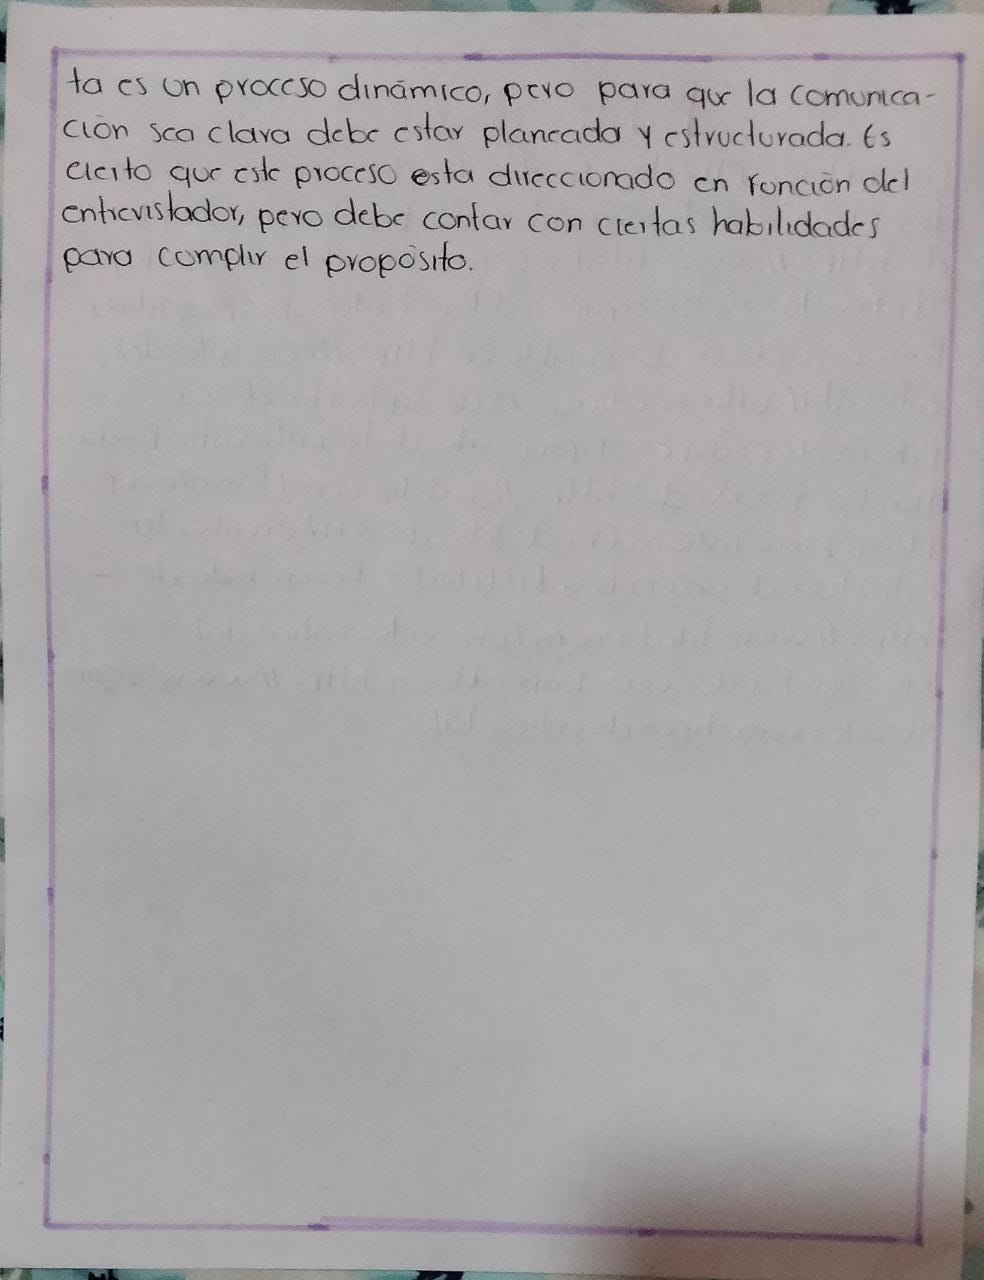 ta es un proceso dinámico, pero para que la comunica-
ción sea clara debe estar planeada y estructurada. Es
cierto que este proceso esta direccionado en función del
entrevistador, pero debe contar con ciertas habilidades
para complir el propósito.